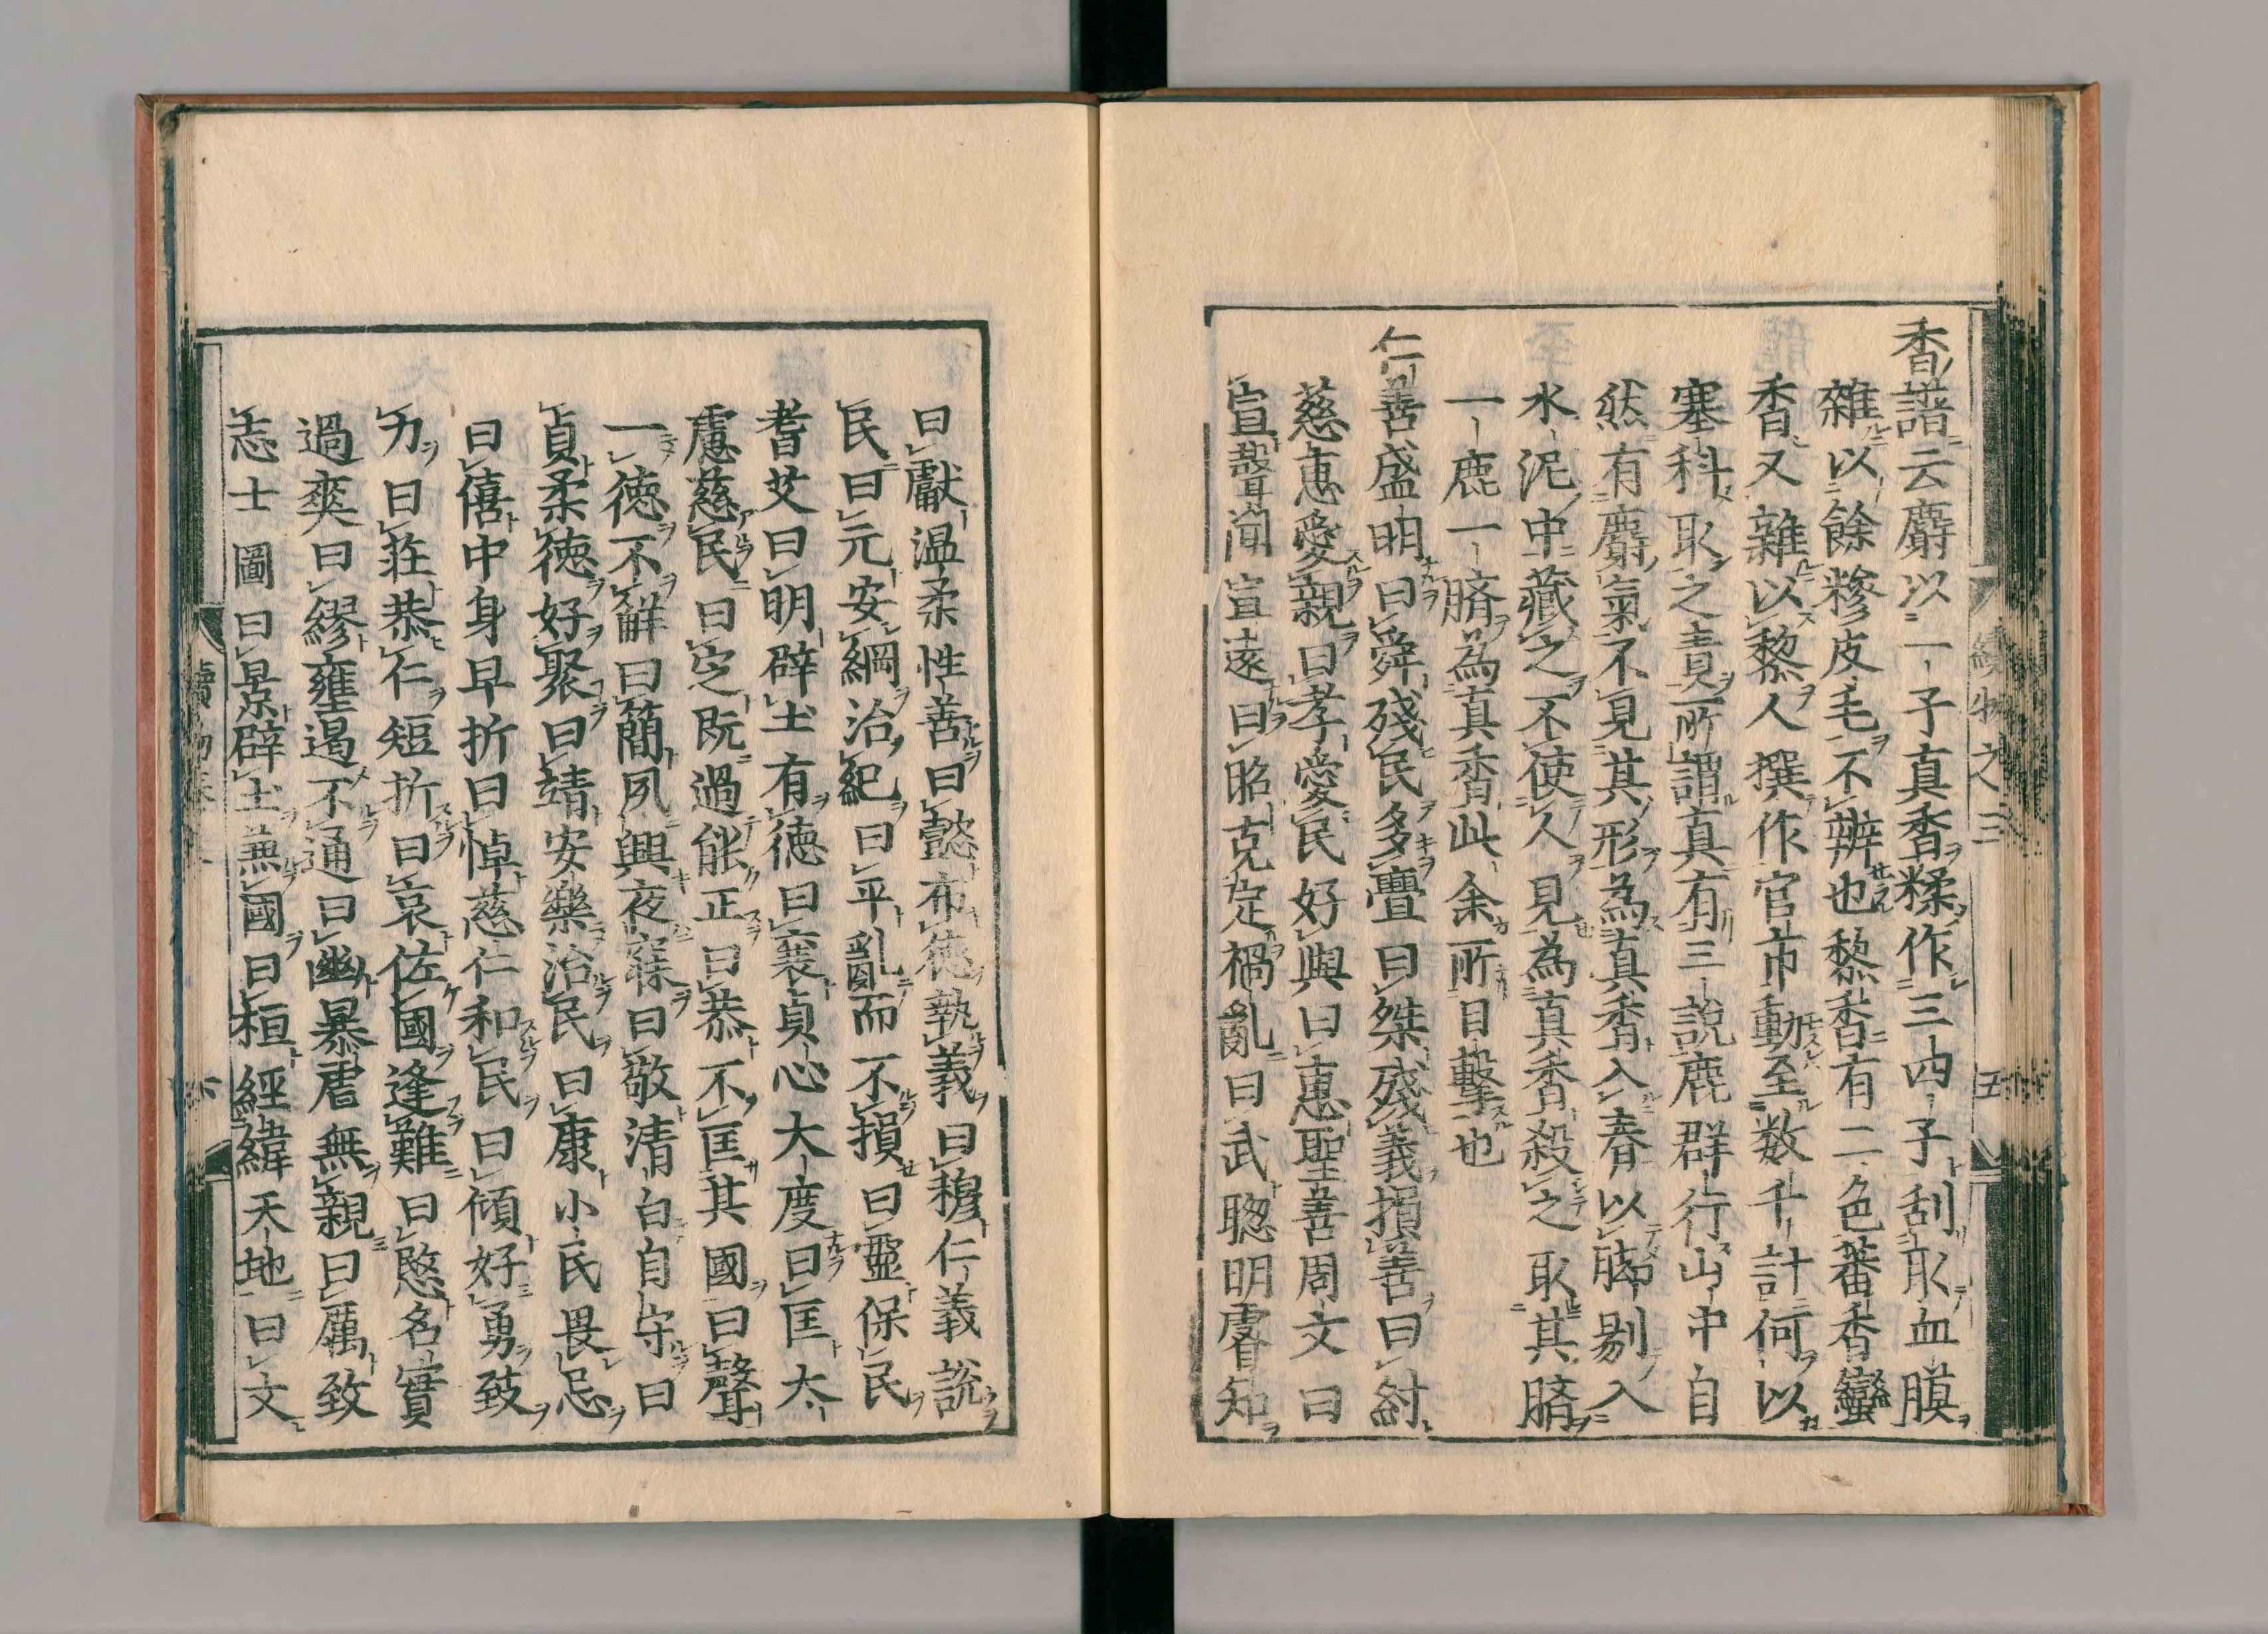 續物之三 五
香譜云麝以一子真香糅作三四子刮取血膜
雜以餘糝皮毛不辨也黎香有二色蕃香蠻
香又雜以黎人撰作官市動至数千計何以
塞科取之責所謂真有三說鹿群行山中自
然有麝氣不見其形為真香入春以脚剔入
水泥中藏之不使人見為真香殺之取其臍
一鹿一臍為真香此余所目擊也
仁善盛明曰舜殘民多亹曰桀殘義損善曰紂
慈惠愛親曰孝愛民好與曰惠聖善周文曰
宣聲聞宣遠曰昭克定禍亂曰武聦明睿知
曰獻温柔性善曰懿布德執義曰穆仁義說
民曰元安綱治紀曰平亂而不損曰靈保民
耆艾曰明辟土有徳曰襄貞心大度曰匡大
慮慈民曰定既過能正曰恭不匡其國曰聲
一徳不觧曰簡夙興夜寐曰敬清白自守曰
貞柔徳好聚曰靖安樂治民曰康小民畏忌
曰僖中身早折曰悼慈仁和民曰傾好勇致
力曰荘恭仁短折曰哀佐國逢難曰愍名實
過爽曰繆壅遏不通曰幽暴虐無親曰厲致
志士圖曰景辟土兼國曰桓經緯天地曰文